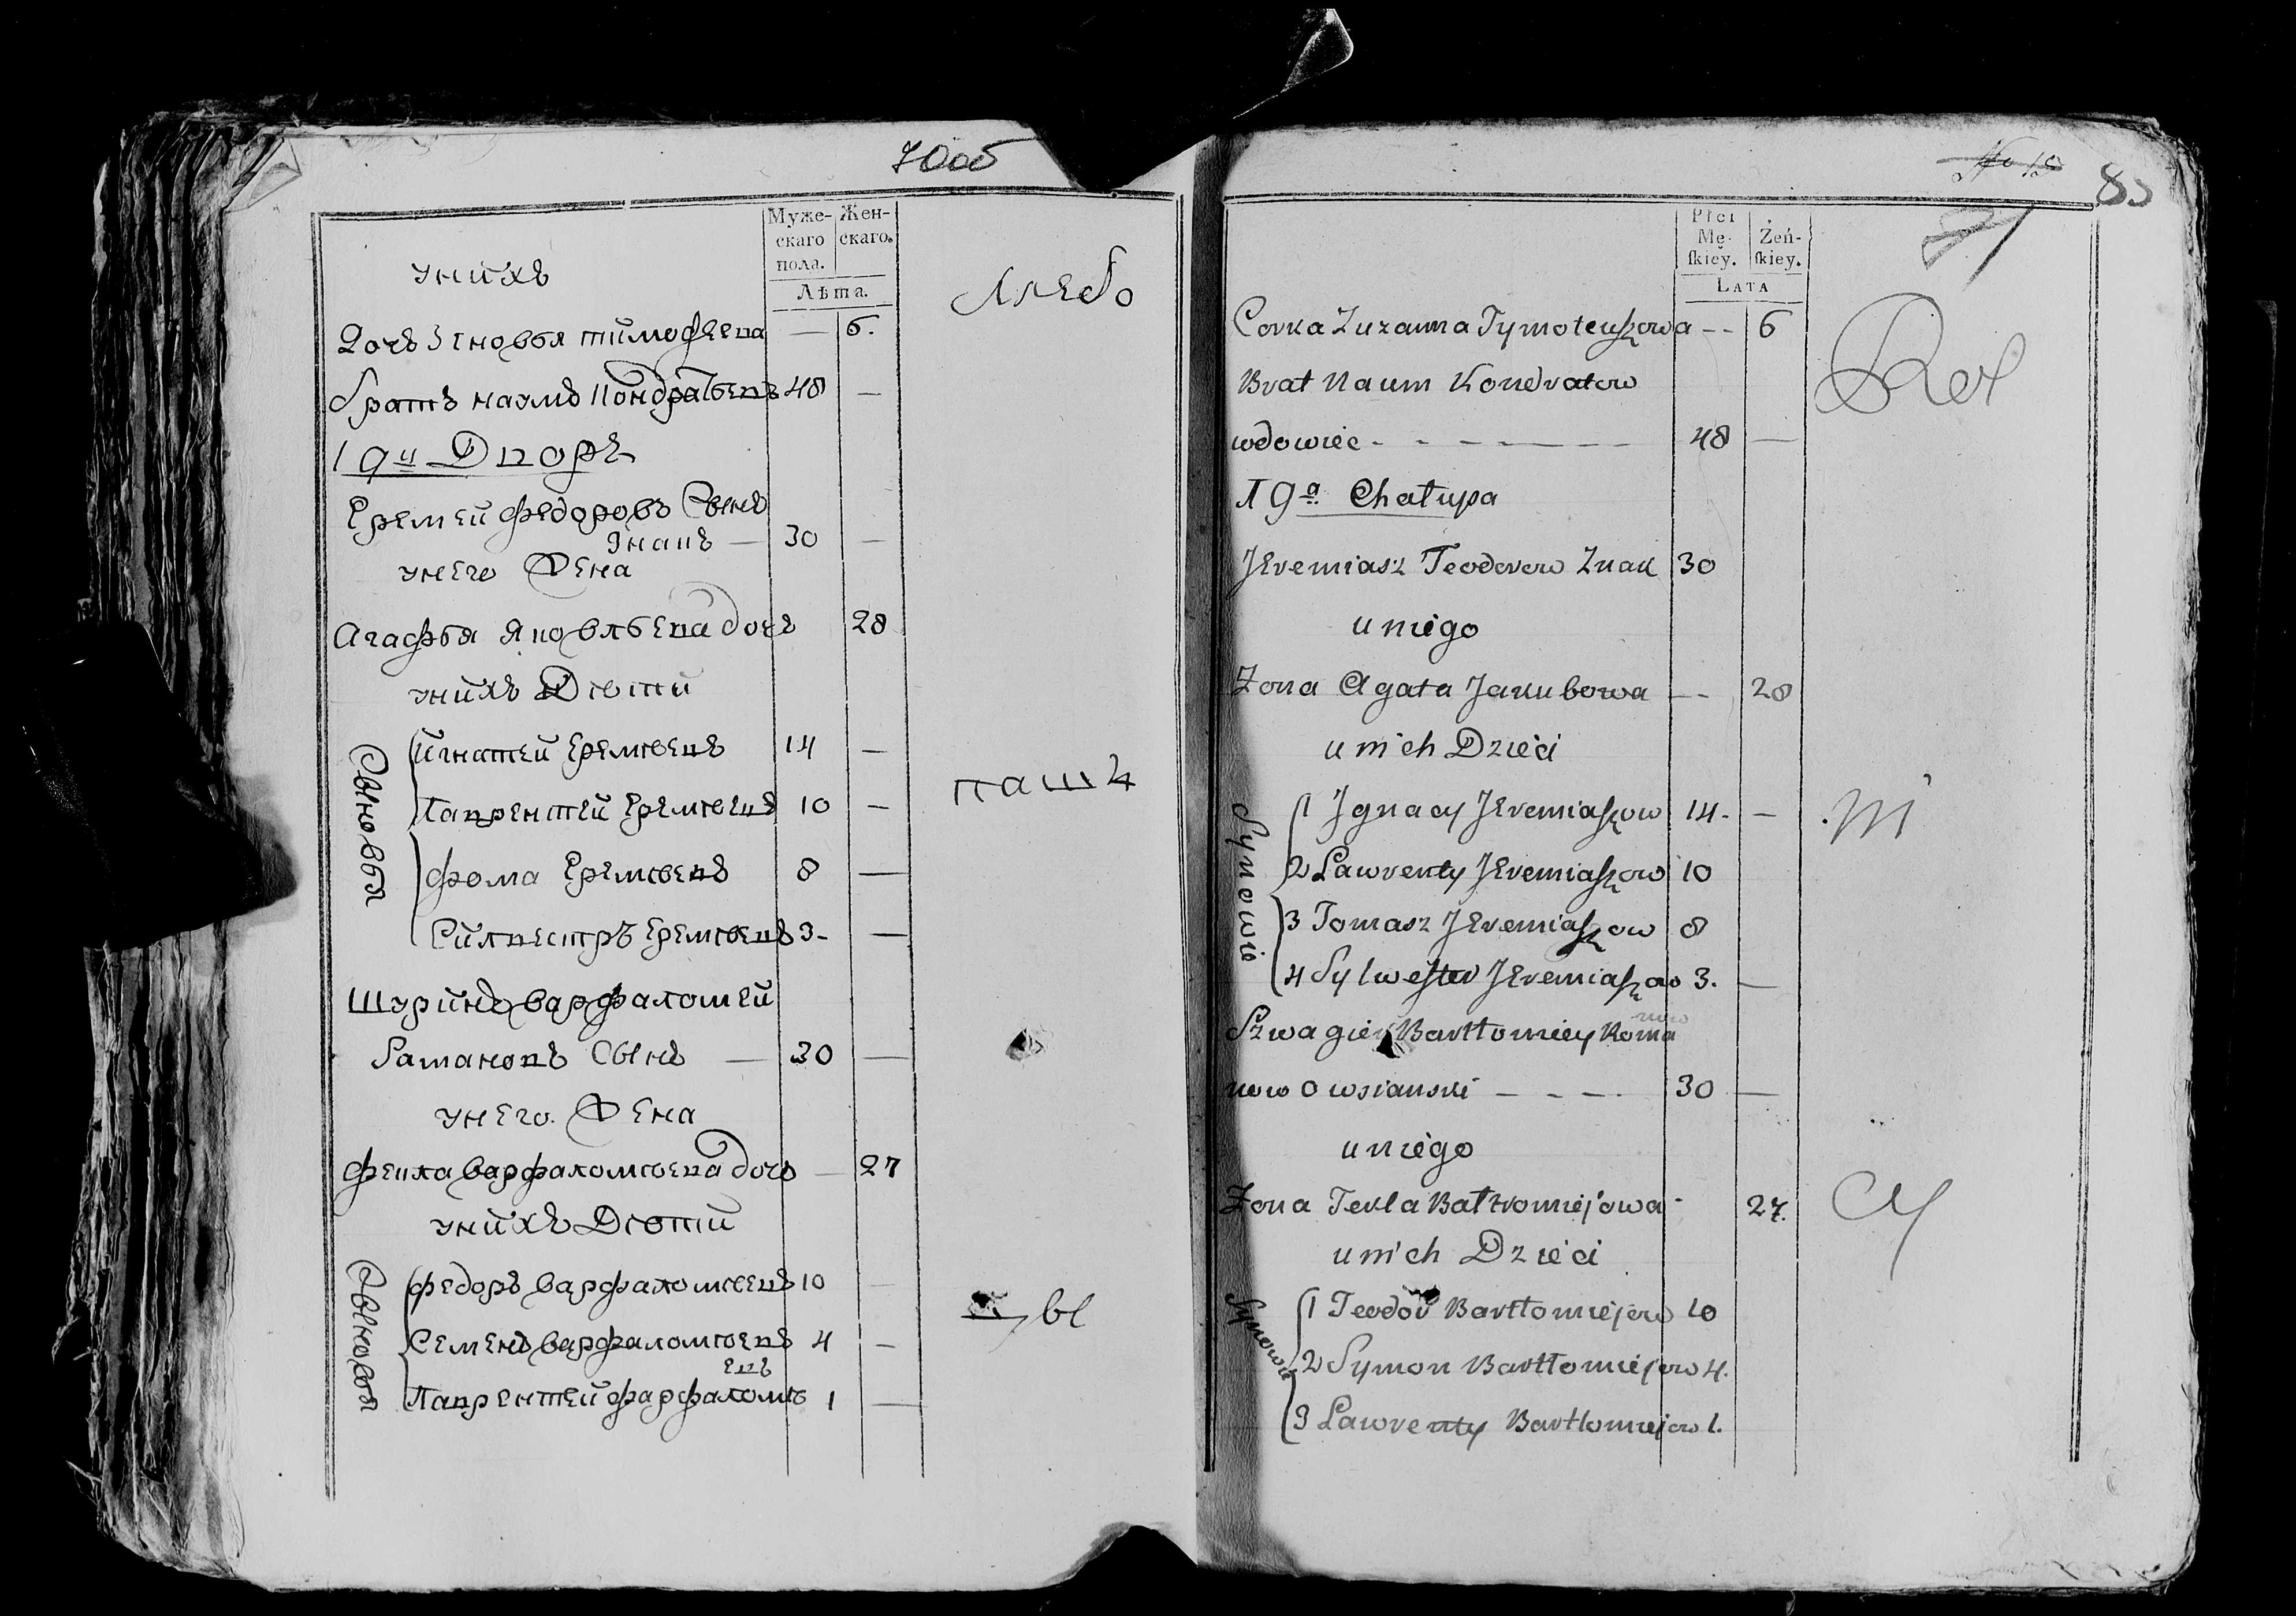 700б
Муже-
скаго
пола.
Жен-
скаго.
Лѣта.
унихъ
Дочь Зеновья тимофеева — 6.
братъ наумъ кондратьевъ 48 —
19й Дворъ
Еремей федоровъ Сынъ
Знакъ — 30 —
унего Жена
Агафья Яковльева дочь 28
унихъ Дѣти
Сыновья
Игнатей Еремѣевъ 14 —
Лаврентей Еремѣевъ 10 —
фома Еремѣевъ 8 —
Силвестръ Еремѣевъ 3- —
Шуринъ варфаломей
Рамановъ Сынъ — 30 —
унего Жена
фекла варфаломѣева дочь — 27
унихъ Дѣти
Сыновья
федоръ варфаломѣевъ 10 —
Семенъ варфаломѣевъ 4 —
евъ
Лаврентей фарфаломѣ 1 —
Хлебо
паш
цы
No 19
83
Płci
Mę-
ſkiey.
Żeń-
ſkiey.
LATA
Corka Zuzanna Tymoteuszowa -- 6
Brat Naum Kondratow
wdowiec - - - - — — — 48 —
19a Chałupa
Jeremiasz Teodorow Znak 30
u niego
Zona Agata Jakubowa -- 28
u nich Dzieci
Synowie
1 Ignacy Jeremiaszow 14. —
2 Lawrenty Jeremiaszow 10
3 Tomasz Jeremiaszow 8
4 Sylwester Jeremiaszow 3. —
Szwagier Bartłomiey Roma
now Owsianski — - - — 30 —
u niego
Zona Tekla Bałtromiejowa - 27.
u nich Dzieci
Synowie
1 Teodor Bartłomiejow 10
2 Symon Bartłomiejow 4.
3 Lawrenty Bartłomiejow 1.
Rol
ni
cy